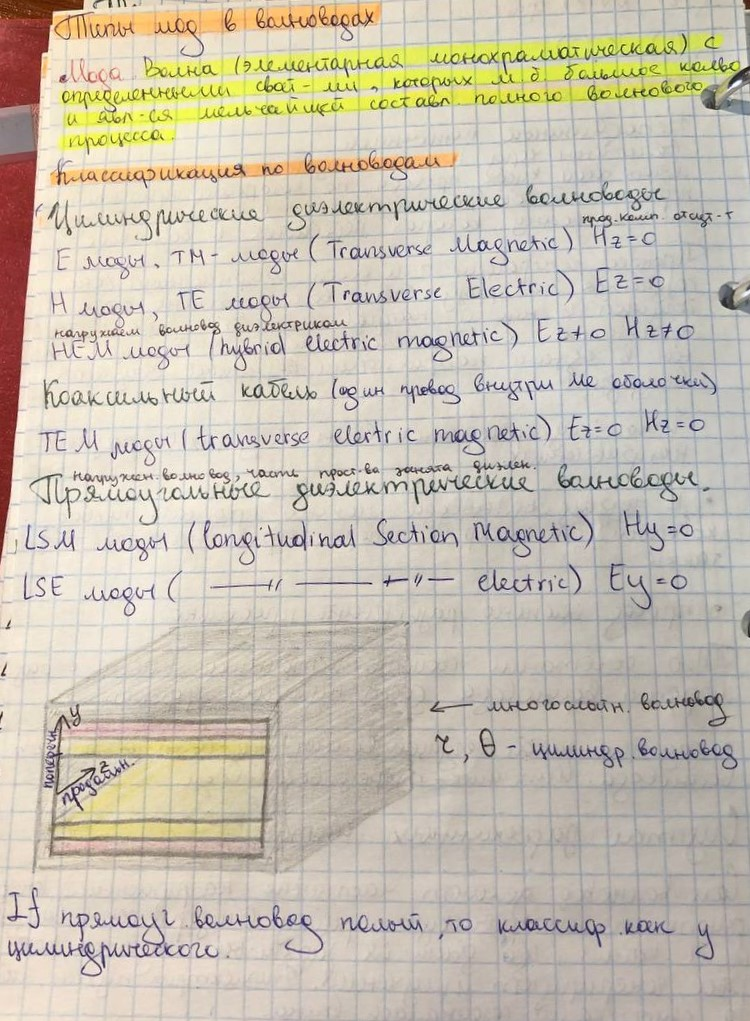 Типы мод в волноводах
Мода Волна (элементарная монохроматическая) с
определенными свой-ми, которых м.б. большое кол-во
и явл-ся мельчайшей составл. полного волнового
процесса.
Классификация по волноводам
Цилиндрические диэлектрические волноводы
прод. комп. отсут-т
E моды, TM- моды (Transverse Magnetic) Hz=0
H моды, TE моды (Transverse Electric) Ez=0
нагружаем волновод диэлектриком
HEM моды (hybrid electric magnetic) Ez≠0 Hz≠0
Коаксильный кабель (один провод внутри Ме оболочки)
TEM моды (transverse elertric magnetic) Ez=0 Hz=0
нагружен. волновод, часть прост-ва занята диэлек.
Прямоугольные диэлектрические волноводы.
LSM моды (longitudinal Section Magnetic) Hy=0
LSE моды ( —〃— —〃— electric) Ey=0
y
поперечн
z
продольн.
← многослойн. волновод
r, θ - цилиндр. волновод
If прямоуг. волновод полый, то классиф. как у
цилиндрического.